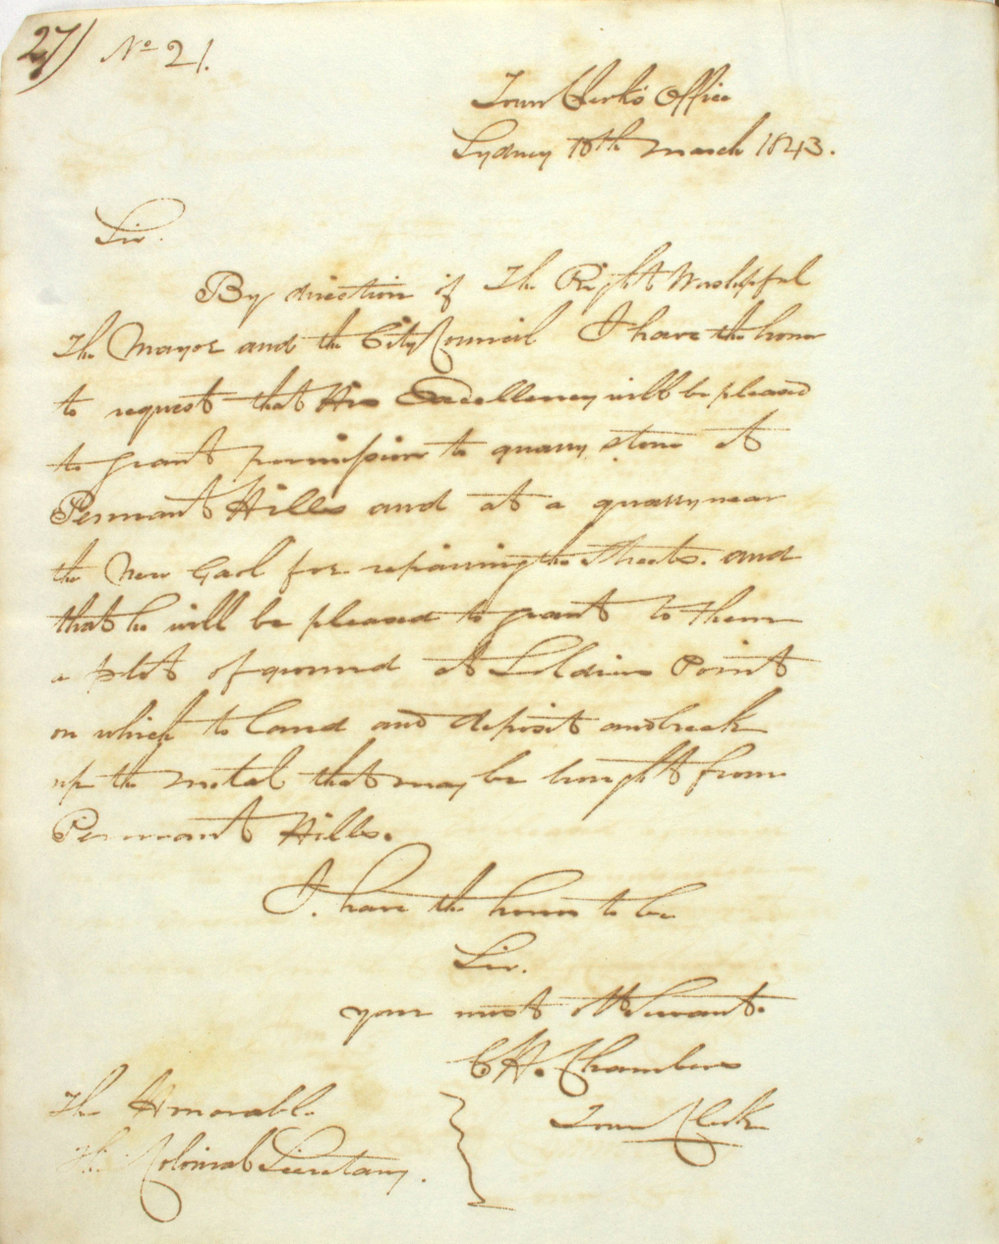 27) No 21.
Town Clerk's Office
Sydney 18th March 1843.
Sir.
By direction of The Right Worshipful
The Mayor and the City Council I have the honor
to request that His Excellency will be pleased
to grant permission to quarry stone at
Pennant Hills and at a quarry near
the New Gaol for repairing the Streets. and
that he will be pleased to grant to them
a plot of ground at Soldiers Point
on which to land and deposit and break
up the metal that may be brought from
Pennant Hills.
I have the honor to be
Sir.
your most obt Servant.
C H. Chambers
Town Clerk
The Honorable
The Colonial Secretary.